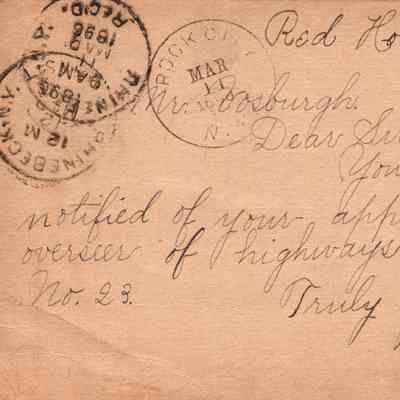 Red Ho
Mr. Vosburgh.
Dear Sir
You
notified of your app
overseer of highways
No. 23.
Truly
ROCK CI
MAR
11
N.
RHINEBECK N.Y.
12 M
1896
REC'D.
1896
9 AM